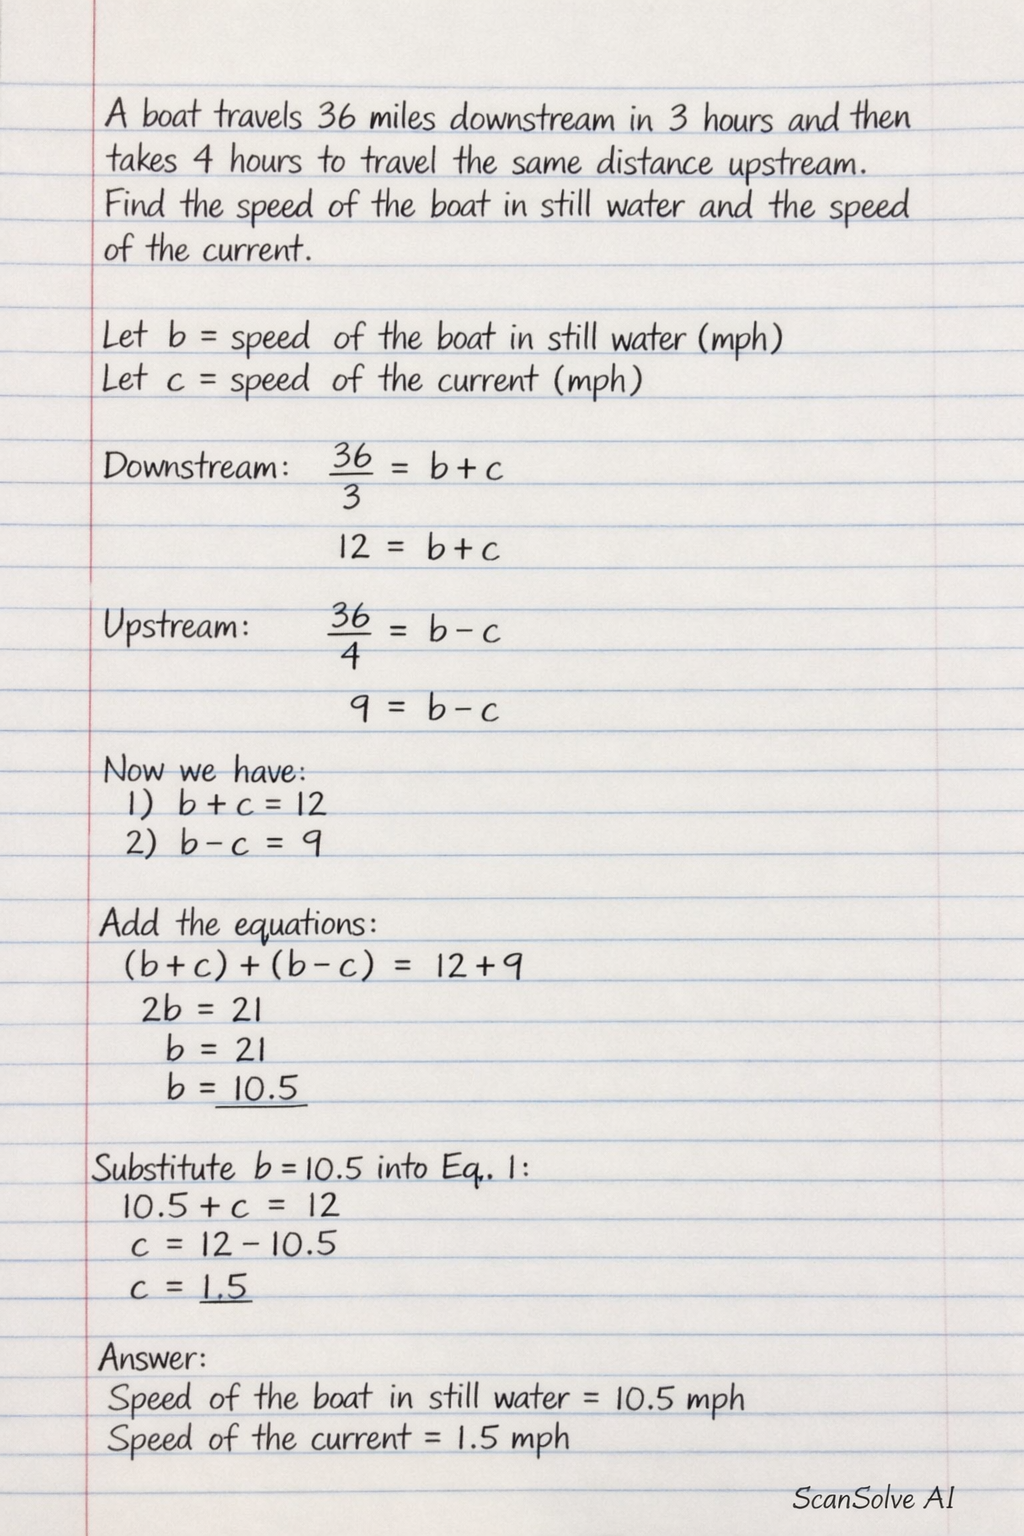 A boat travels 36 miles downstream in 3 hours and then
takes 4 hours to travel the same distance upstream.
Find the speed of the boat in still water and the speed
of the current.
Let b = speed of the boat in still water (mph)
Let c = speed of the current (mph)
Downstream: 36/3 = b + c
12 = b + c
Upstream: 36/4 = b - c
9 = b - c
Now we have:
1) b + c = 12
2) b - c = 9
Add the equations:
(b + c) + (b - c) = 12 + 9
2b = 21
b = 21
b = 10.5
Substitute b = 10.5 into Eq. 1:
10.5 + c = 12
c = 12 - 10.5
c = 1.5
Answer:
Speed of the boat in still water = 10.5 mph
Speed of the current = 1.5 mph
ScanSolve AI